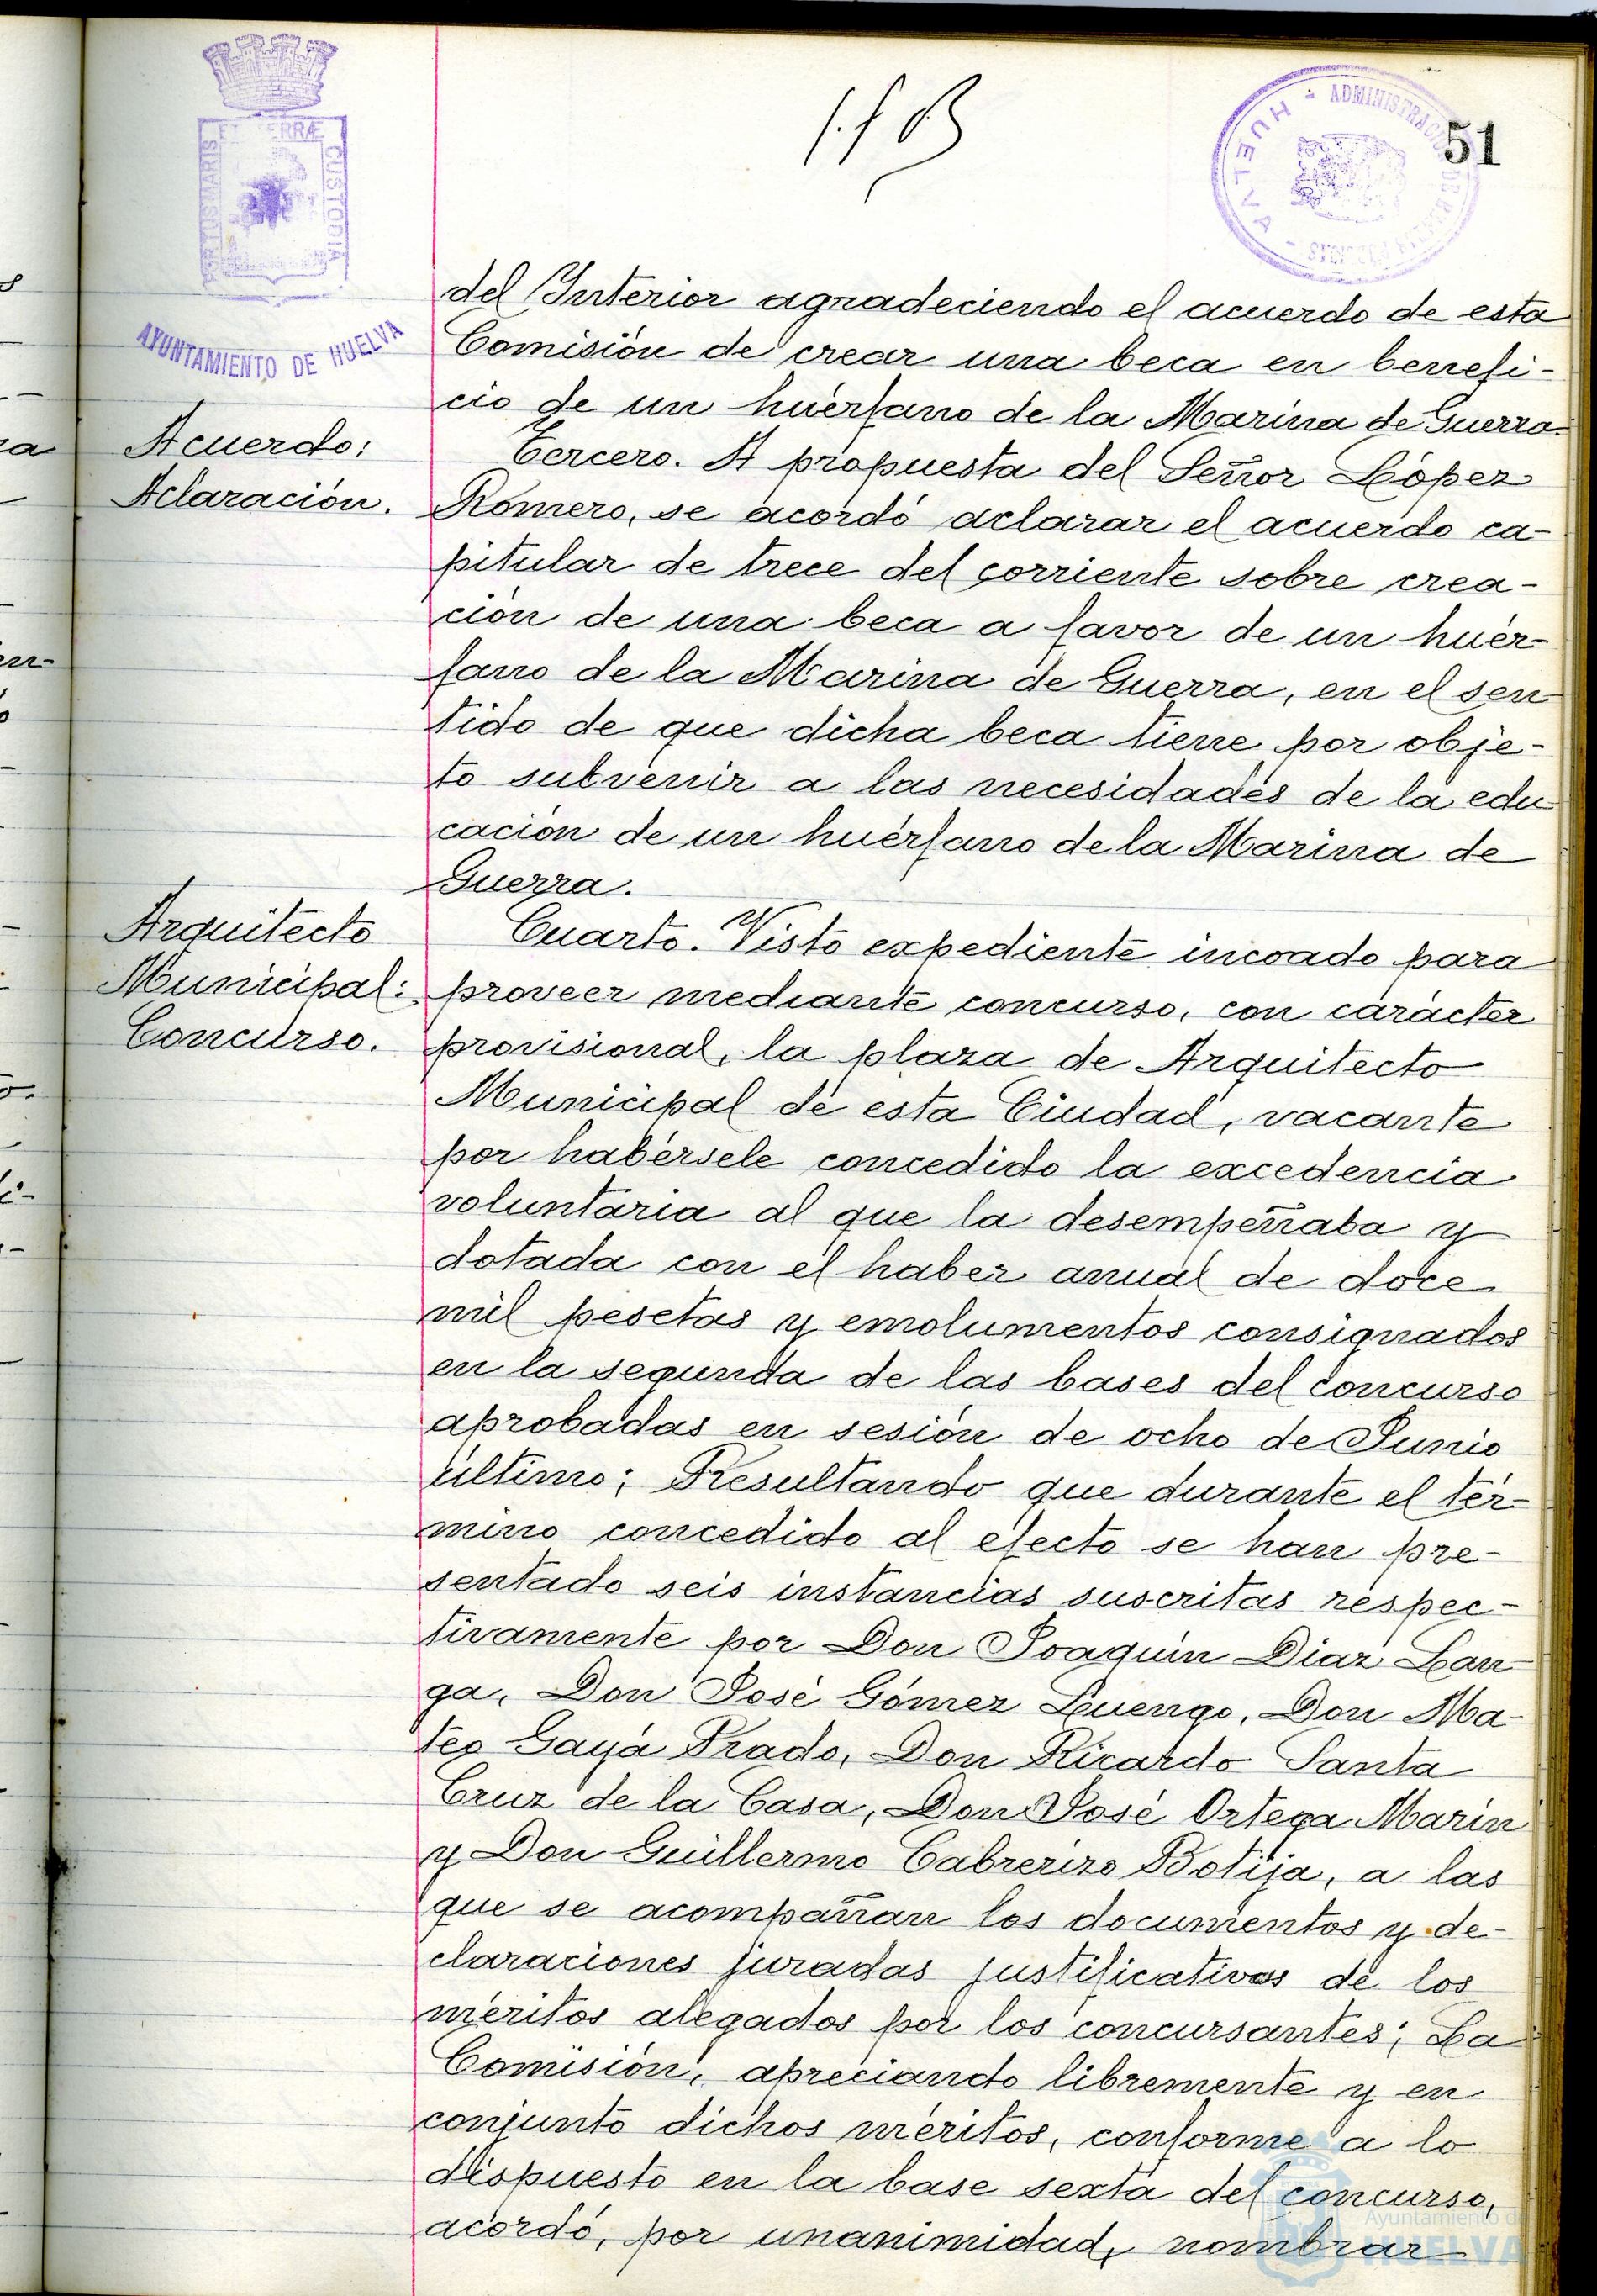 51
PORTUS MARIS ET TERRÆ CUSTODIA
AYUNTAMIENTO DE HUELVA
HUELVA
del Interior agradeciendo el acuerdo de esta
Comisión de crear una beca en benefi-
cio de un huérfano de la Marina de Guerra.
Acuerdo:
Aclaración.
Tercero. A propuesta del Señor López
Romero, se acordó aclarar el acuerdo ca-
pitular de trece del corriente sobre crea-
ción de una beca a favor de un huér-
fano de la Marina de Guerra, en el sen
tido de que dicha beca tiene por obje-
to subvenir a las necesidades de la edu
cación de un huérfano de la Marina de
Guerra.
Arquitecto
Municipal:
Concurso.
Cuarto. Visto expediente incoado para
proveer mediante concurso, con carácter
provisional, la plaza de Arquitecto
Municipal de esta Ciudad, vacante
por habérsele concedido la excedencia
voluntaria al que la desempeñaba y
dotada con el haber anual de doce
mil pesetas y emolumentos consignados
en la segunda de las bases del concurso
aprobadas en sesión de ocho de Junio
último; Resultando que durante el tér-
mino concedido al efecto se han pre-
sentado seis instancias suscritas respec-
tivamente por Don Joaquín Díaz Lan-
ga, Don José Gómez Luengo, Don Ma-
teo Gayá Prado, Don Ricardo Santa
Cruz de la Casa, Don José Ortega Marín
y Don Guillermo Cabrerizo Botija, a las
que se acompañan los documentos y de-
claraciones juradas justificativas de los
méritos alegados por los concursantes; La
Comisión, apreciando libremente y en
conjunto dichos méritos, conforme a lo
dispuesto en la base sexta del concurso,
acordó, por unanimidad, nombrar
Ayuntamiento de
HUELVA